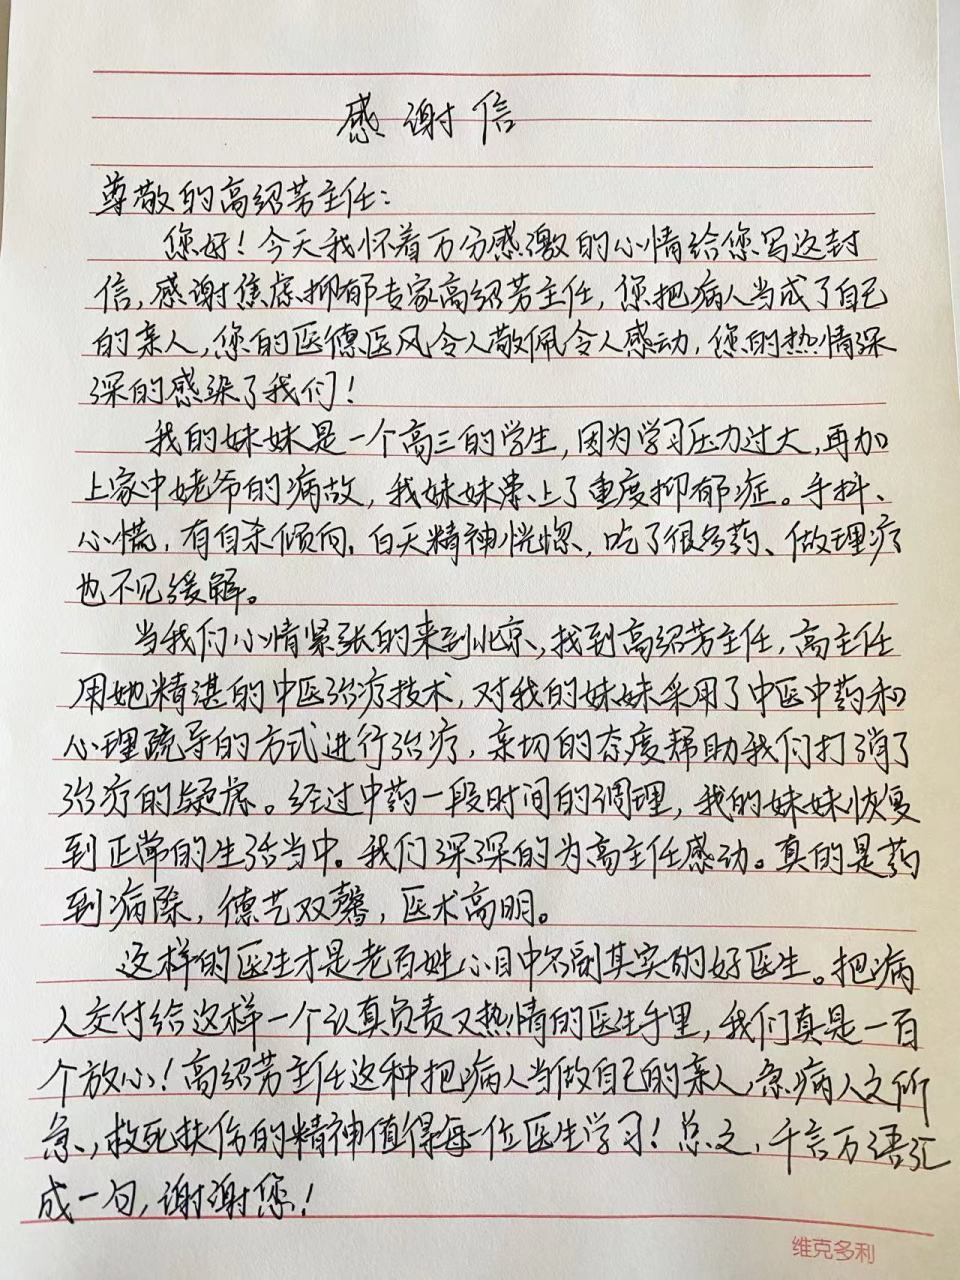 感谢信
尊敬的高绍芳主任：
您好！今天我怀着万分感激的心情给您写这封
信，感谢焦虑抑郁专家高绍芳主任，您把病人当成了自己
的亲人，您的医德医风令人敬佩令人感动，您的热情深
深的感染了我们！
我的妹妹是一个高三的学生，因为学习压力过大，再加
上家中姥爷的病故，我妹妹患上了重度抑郁症。手抖、
心慌，有自杀倾向，白天精神恍惚，吃了很多药、做理疗
也不见缓解。
当我们心情紧张的来到北京，找到高绍芳主任，高主任
用她精湛的中医治疗技术，对我的妹妹采用了中医中药和
心理疏导的方式进行治疗，亲切的态度帮助我们打消了
治疗的疑虑。经过中药一段时间的调理，我的妹妹恢复
到正常的生活当中。我们深深的为高主任感动。真的是药
到病除，德艺双馨，医术高明。
这样的医生才是老百姓心目中名副其实的好医生。把病
人交付给这样一个认真负责又热情的医生手里，我们真是一百
个放心！高绍芳主任这种把病人当做自己的亲人，急病人之所
急，救死扶伤的精神值得每一位医生学习！总之，千言万语汇
成一句，谢谢您！
维克多利